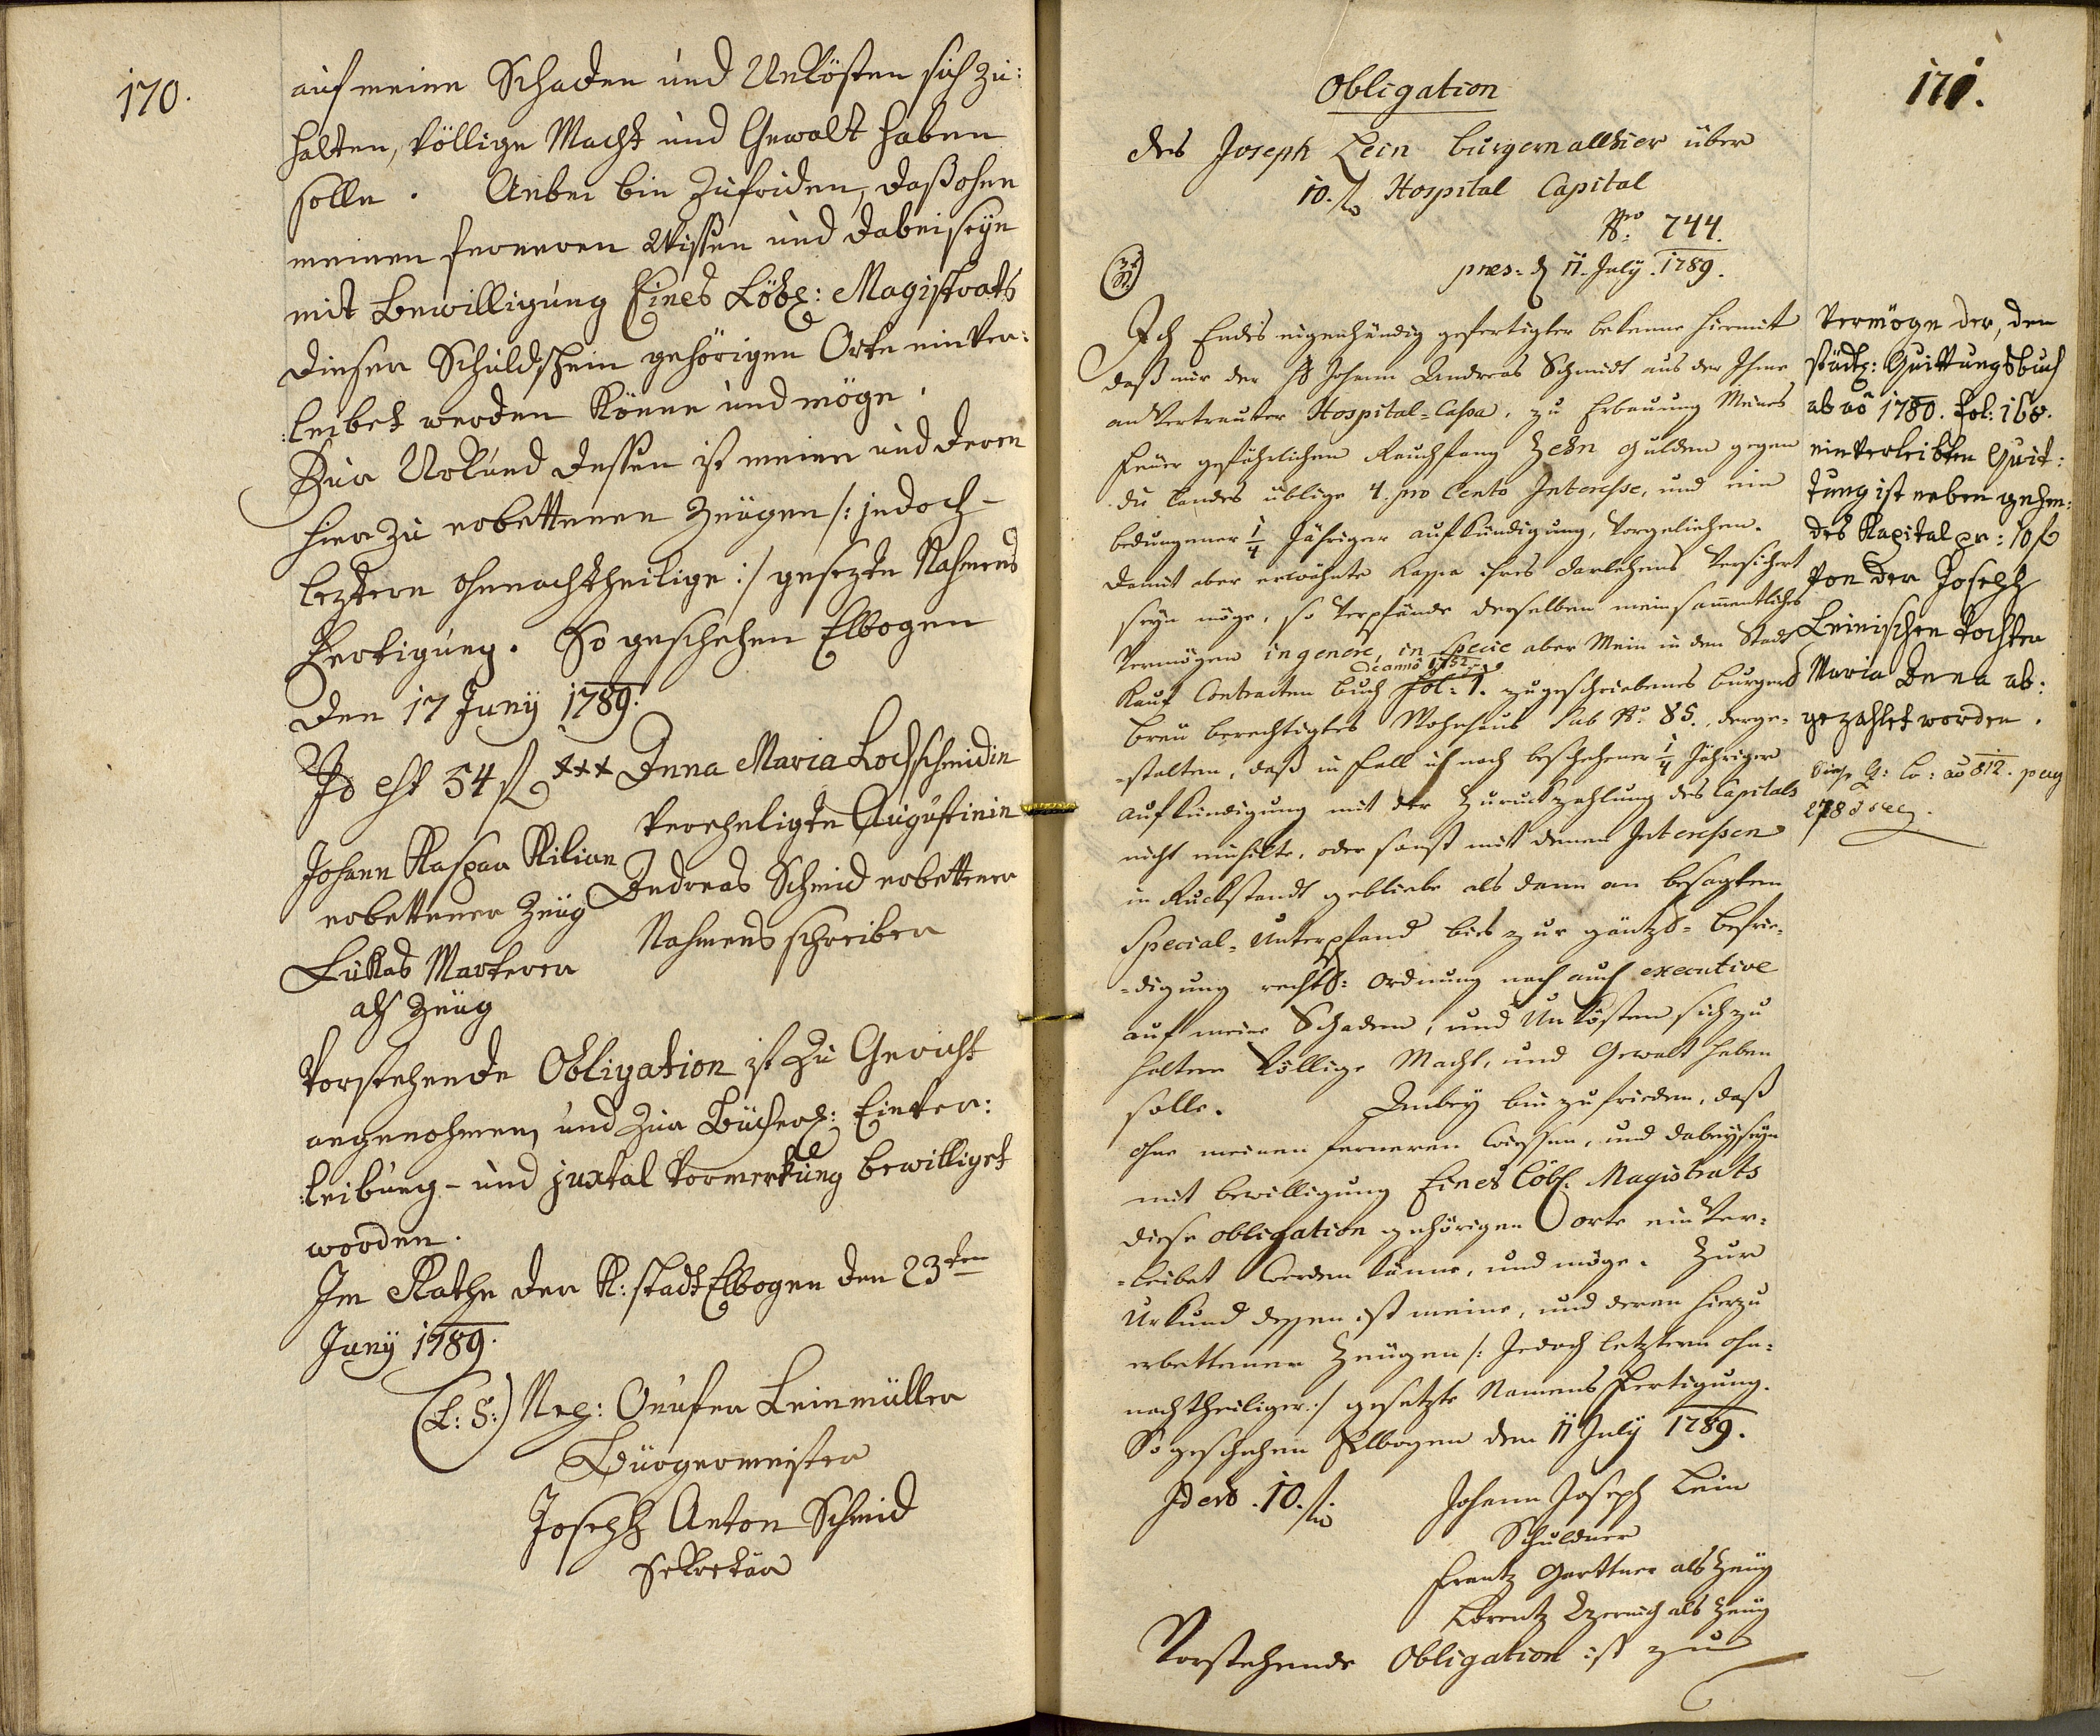 170.
auf meine Schaden und Unkösten sich zu:
halten, völlige Macht und Gewalt haben
solle. Anbei bin zufriden, daß ohne
meinen ferneren Wissen und dabeiseyn
mit Bewilligung Eines Löbl: Magistrats
dieser Schuldschein gehörigen Orts einver:
:leibet werden könne und möge.
Zur Urkund dessen ist meine und deren
hierzu erbettenen Zeugen /: jedoch
leztern ohnnachtheilige :/ gesezte Nahmens
Fertigung. So geschehen Elbogen
den 17 Juny 1789.
Id est 54 fl xxx Anna Maria Lochschmidin
verehligte Augustinin
Johann Kaspar Kilian
erbettener Zeüg
Andreas Schmid erbettener
Nahmensschreiber
Lukas Marterer
als Zeüg
Vorstehende Obligation ist zu Gericht
angenohmen, und zur Bücherl: Einver:
:leibung- und juxtal Vormerkung bewilliget
worden.
Im Rathe der K: stadt Elbogen den 23ten
Juny 1789.
(L: S:) Neg: Onufer Leinmüller
Bürgermeister
Joseph Anton Schmid
Sekretär
171.
Obligation
des Joseph Lein burgern allhier über
10. fl Hospital Capital
Nro 744.
pres. d 11. July. 1789.
Ich Endes eigenhändig gefertigter bekenne hiermit
daß mir der H Johann Andreas Schmidt aus der Ihme
anvertrauter Hospital-Cassa, zu Erbauung Meines
feuer gefährlichen Rauchfang Zehn gulden gegen
die landes übliche 4. pro Cento Interesse, und ein
bedungener 1/4 Jähriger aufkündigung, vorgeliehen.
damit aber erwöhnte Kassa ihres darlehens versichert
seyn möge, so verpfände derselben mein sammentliches
Vermögen in genere, in specie aber Mein in dem Stadt
de anno 1752
Kauf Contracten buch fol: 1. zugeschriebenes burgerl
breu berechtigtes Wohnhaus sub No. 85. derge-
-stalten, daß in fall ich nach beschehener 1/4 Jähriger
aufkündigung mit der Zuruckzahlung des Capitals
nicht einhilte, oder sonst mit denen Interessen
in Ruckstandt gebliebe als dann an besagten
Special-Unterpfand bis zur gäntzl- befrie-
-digung rechtl: ordnung nach auch executive
auf meine Schaden, und Unkösten sich zu
halten völlige Macht, und Gewalt haben
solle. Anbey bin zufrieden, daß
ohne meinen ferneren wiessen, und dabeyseyn
mit bewilligung Eines Löbl. Magistrats
diese obligation gehörigen orts einver-
-leibet werden könne, und möge. Zur
Urkund dessen ist meine, und deren hierzu
erbettenen Zeugen /: Jedoch letztern ohn-
nachtheiliger :/ gesetzte Namens Fertigung.
So geschehen Elbogen den 11 July 1789.
Id est. 10. fl.
Johann Joseph Lein
Schuldner
Frantz Gerttner als Zeüg
Lorentz als Zeüg
Vorstehende Obligation ist zu
Vermöge der, dem
städtl: Quittungsbuch
ab ao 1780. Fol: 168.
einverleibten Quit:
tung ist neben gehen:
des Kapital pr: 10 f
von der Joseph
Leinischen Tochter
Maria Anna ab:
gezahlet worden.